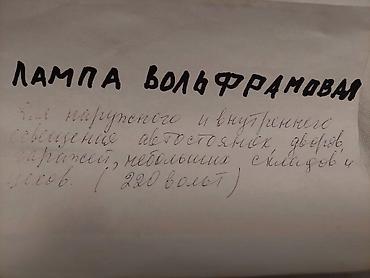 ЛАМПА ВОЛЬФРАМОВАЯ
Для наружного и внутреннего
освещения автостоянок, дворов,
гаражей, небольших складов и
цехов. ( 220 вольт )